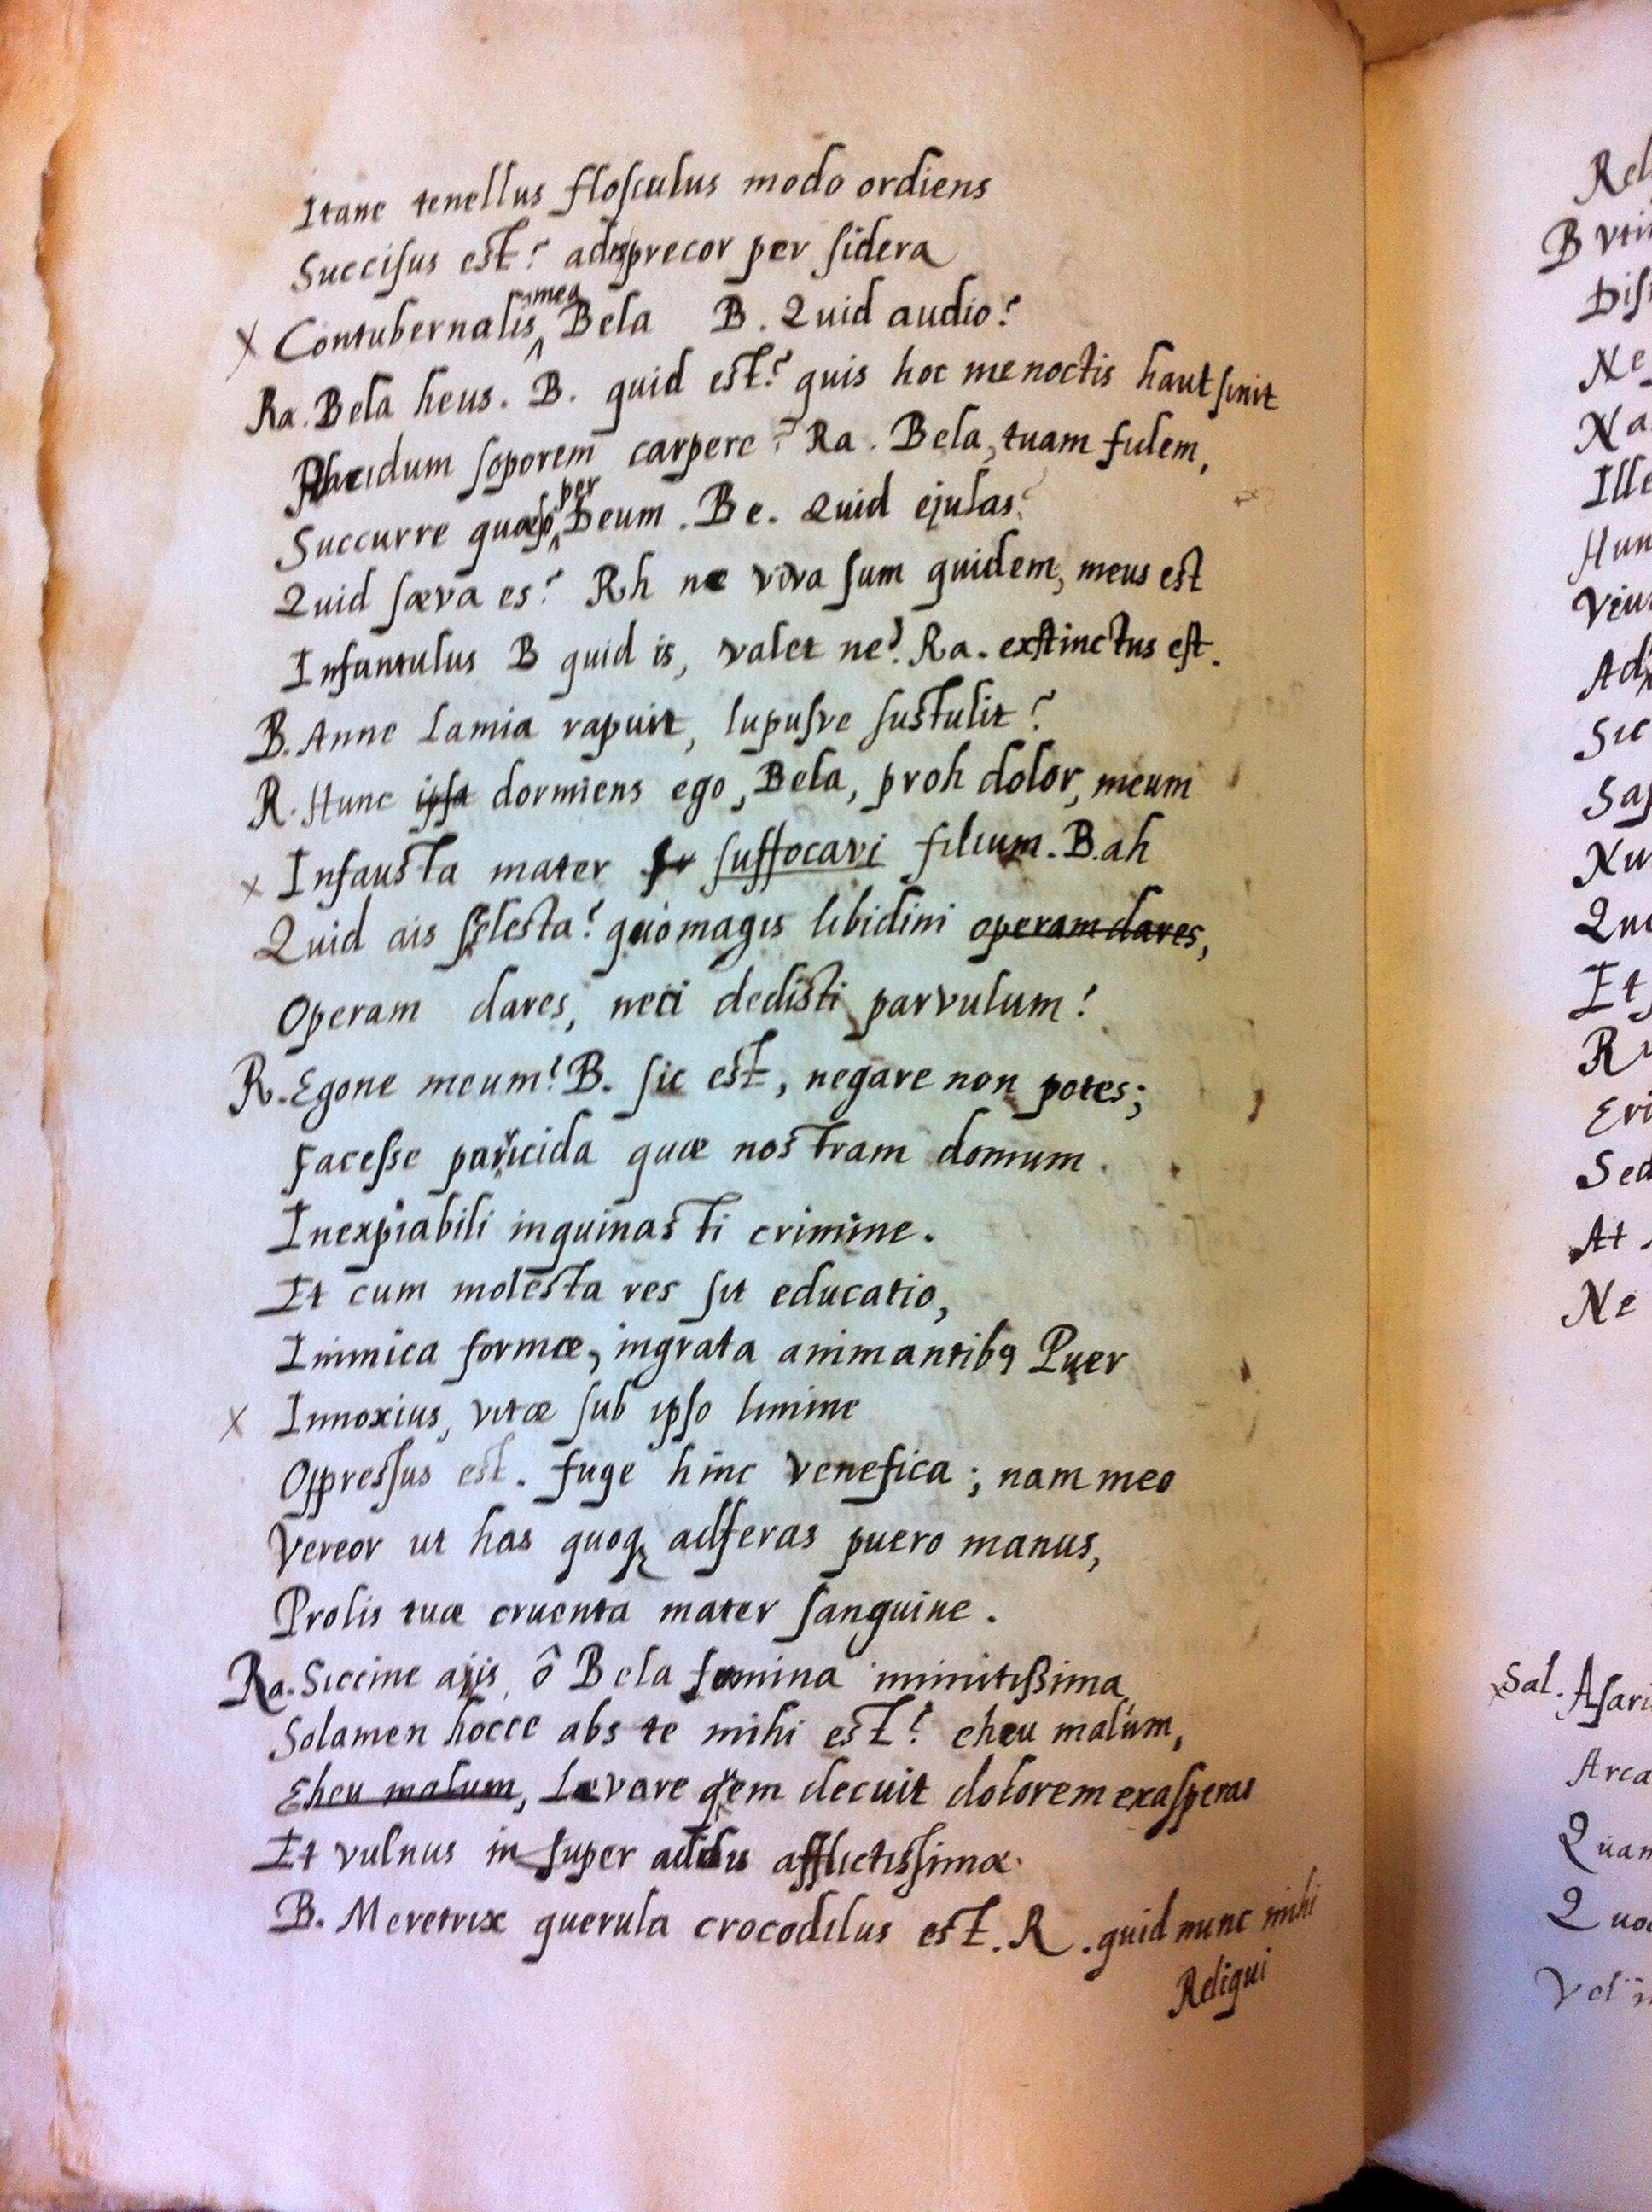 Itane tenellus flosculus modo ordiens
Succisus est? ades precor per sidera
x Contubernalis mea Bela B. Quid audio?
Ra. Bela heus. B. quid est? quis hoc me noctis haut sinit
Placidum soporem carpere? Ra. Bela, tuam fidem,
Succurre quæso per Deum. Be. Quid ejulas?
Quid sæva es? Rh ne viva sum quidem, meus est
Infantulus B quid is, valet ne? Ra. exstinctus est.
B. Anne Lamia rapuit, lupusve sustulit?
R. Hunc ipsa dormiens ego, Bela, proh dolor, meum
x Infausta mater suffocavi filium. B. ah
Quid ais scelesta? quo magis libidini operam dares,
Operam dares, neci dedisti parvulum!
R. Egone meum! B. sic est, negare non potes;
Facesse parricida quæ nostram domum
Inexpiabili inquinasti crimine.
Et cum molesta res sit educatio,
Inimica formæ, ingrata animantibꝰ Puer
x Innoxius, vitæ sub ipso limine
Oppressus est. fuge hinc venefica; nam meo
Vereor ut has quoq adferas puero manus,
Prolis tuæ cruenta mater sanguine.
Ra. Siccine ajis, ô Bela femina inmitissima
Solamen hocce abs te mihi est? eheu malum,
Eheu malum, Levare quem decuit dolorem exasperas
Et vulnus in super addis afflictissimæ.
B. Meretrix querula crocodilus est. R. quid nunc mihi
Reliqui
Ne
Ille
Sic
Et
At
Ne
Sal.